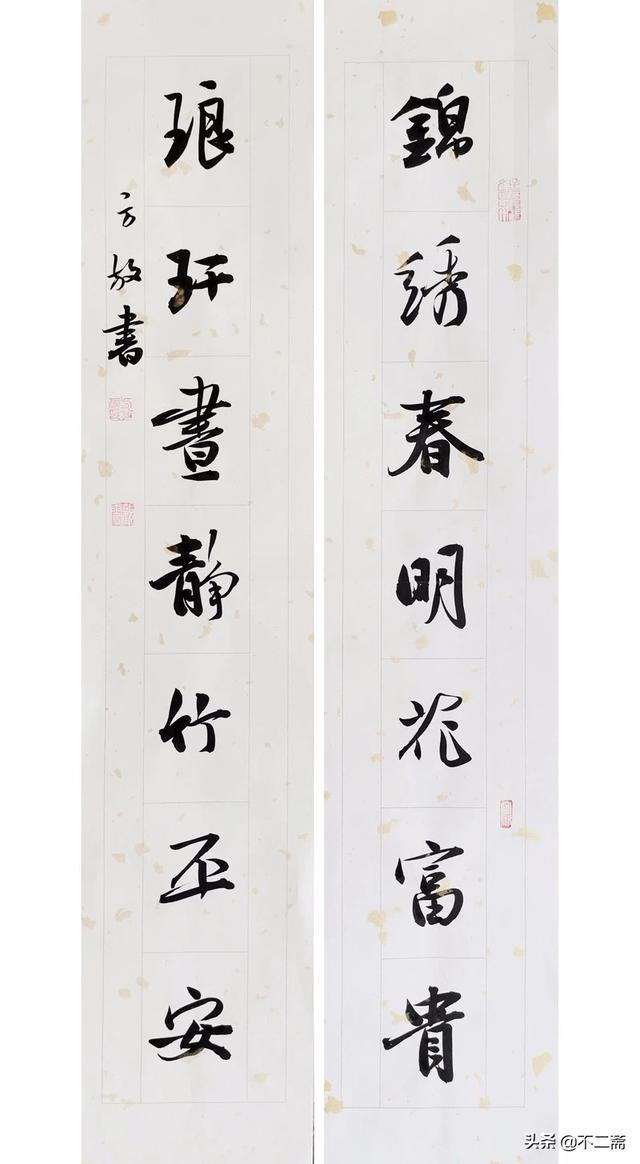 錦綉春明花富貴
琅玕晝静竹平安
方書
头条 @不二斋